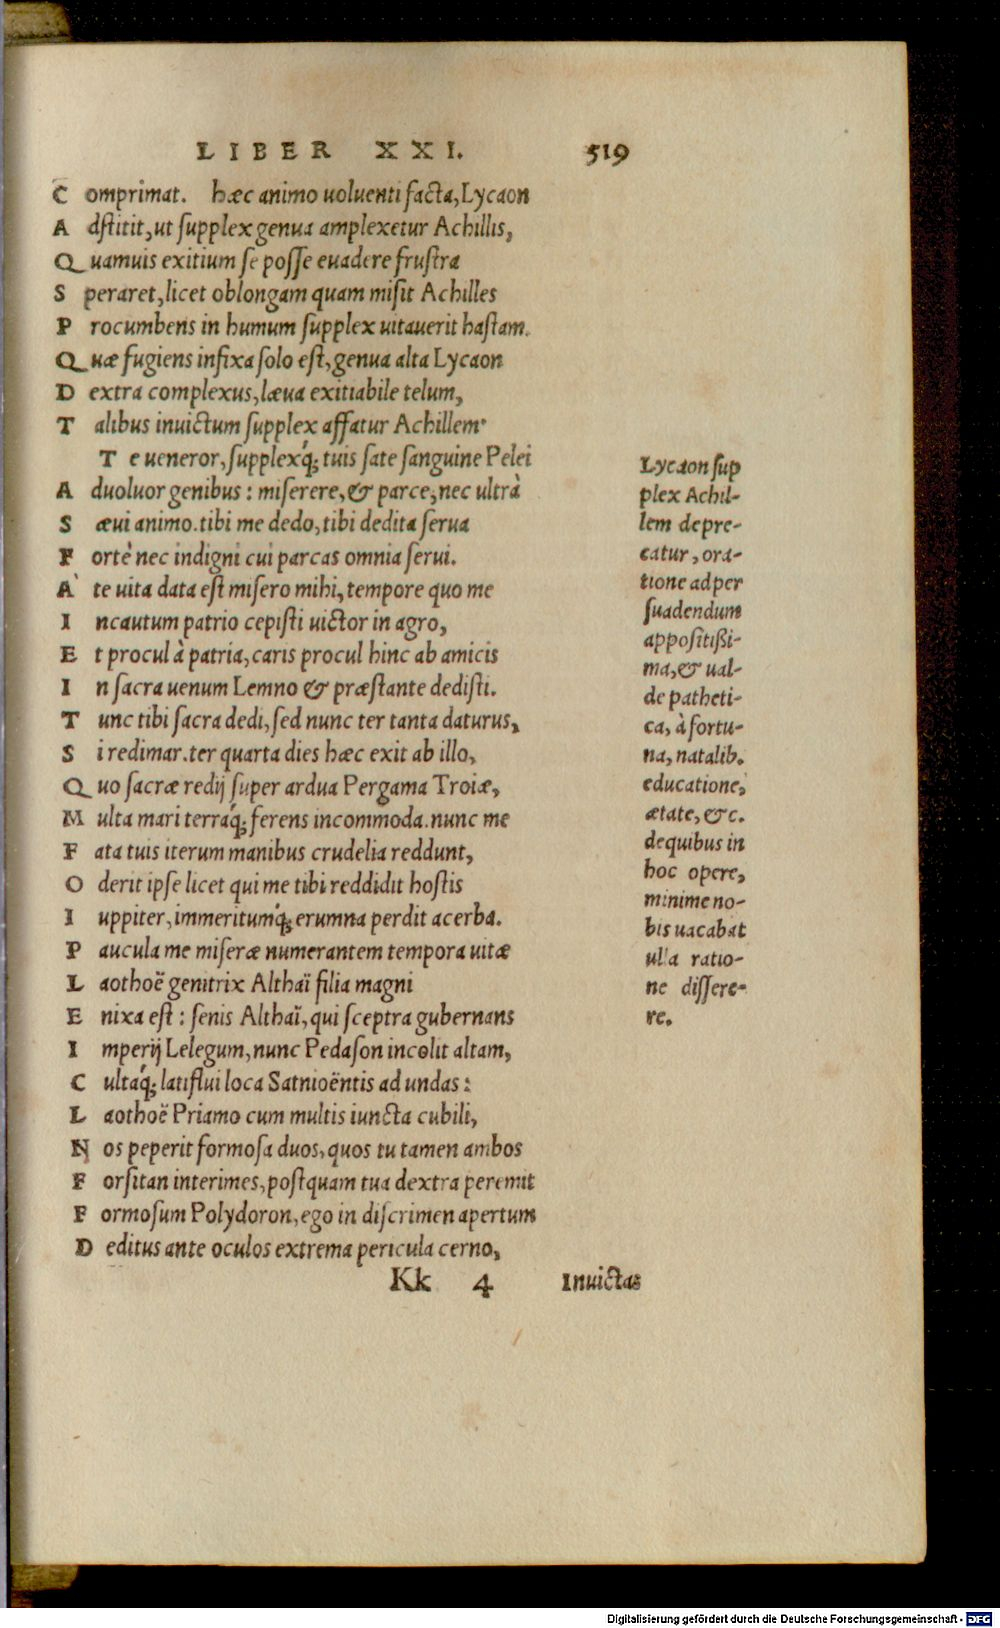 LIBER XXI. 519
Comprimat. hæc animo uoluenti facta, Lycaon
Adstitit, ut supplex genua amplexetur Achillis,
Quamuis exitium se posse euadere frustra
Speraret, licet oblongam quam misit Achilles
Procumbens in humum supplex uitauerit hastam.
Quæ fugiens infixa solo est, genua alta Lycaon
Dextra complexus, læua exitiabile telum,
Talibus inuictum supplex affatur Achillem·
Te ueneror, supplexq́; tuis sate sanguine Pelei
Aduoluor genibus: miserere, & parce, nec ultrà
Sæui animo. tibi me dedo, tibi dedita serua
Fortè nec indigni cui parcas omnia serui.
À te uita data est misero mihi, tempore quo me
Incautum patrio cepisti uictor in agro,
Et procul à patria, caris procul hinc ab amicis
In sacra uenum Lemno & præstante dedisti.
Tunc tibi sacra dedi, sed nunc ter tanta daturus,
Si redimar. ter quarta dies hæc exit ab illo,
Quo sacræ redij super ardua Pergama Troiæ,
Multa mari terraq́; ferens incommoda. nunc me
Fata tuis iterum manibus crudelia reddunt,
Oderit ipse licet qui me tibi reddidit hostis
Iuppiter, immeritumq́; erumna perdit acerba.
Paucula me miseræ numerantem tempora uitæ
Laothoë genitrix Althaï filia magni
Enixa est: senis Althaï, qui sceptra gubernans
Imperij Lelegum, nunc Pedason incolit altam,
Cultaq́; latiflui loca Satnioëntis ad undas:
Laothoë Priamo cum multis iuncta cubili,
Nos peperit formosa duos, quos tu tamen ambos
Forsitan interimes, postquam tua dextra peremit
Formosum Polydoron, ego in discrimen apertum
Deditus ante oculos extrema pericula cerno,
Kk 4 Inuictas
Lycaon sup
plex Achil-
lem depre-
catur, ora-
tione ad per
suadendum
appositißi-
ma, & ual-
de patheti-
ca, à fortu-
na, natalib.
educatione,
ætate, &c.
de quibus in
hoc opere,
minime no-
bis uacabat
ulla ratio-
ne dissere-
re.
Digitalisierung gefördert durch die Deutsche Forschungsgemeinschaft - DFG